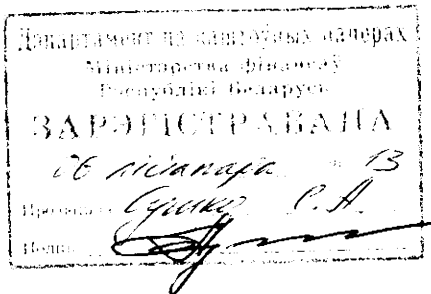 Дэпартамент па каштоўных паперах
Міністэрства фінансаў
Рэспублікі Беларусь
ЗАРЭГІСТРАВАНА
06 лістапада 13
Прозвішча Сушко С.А.
Подпіс